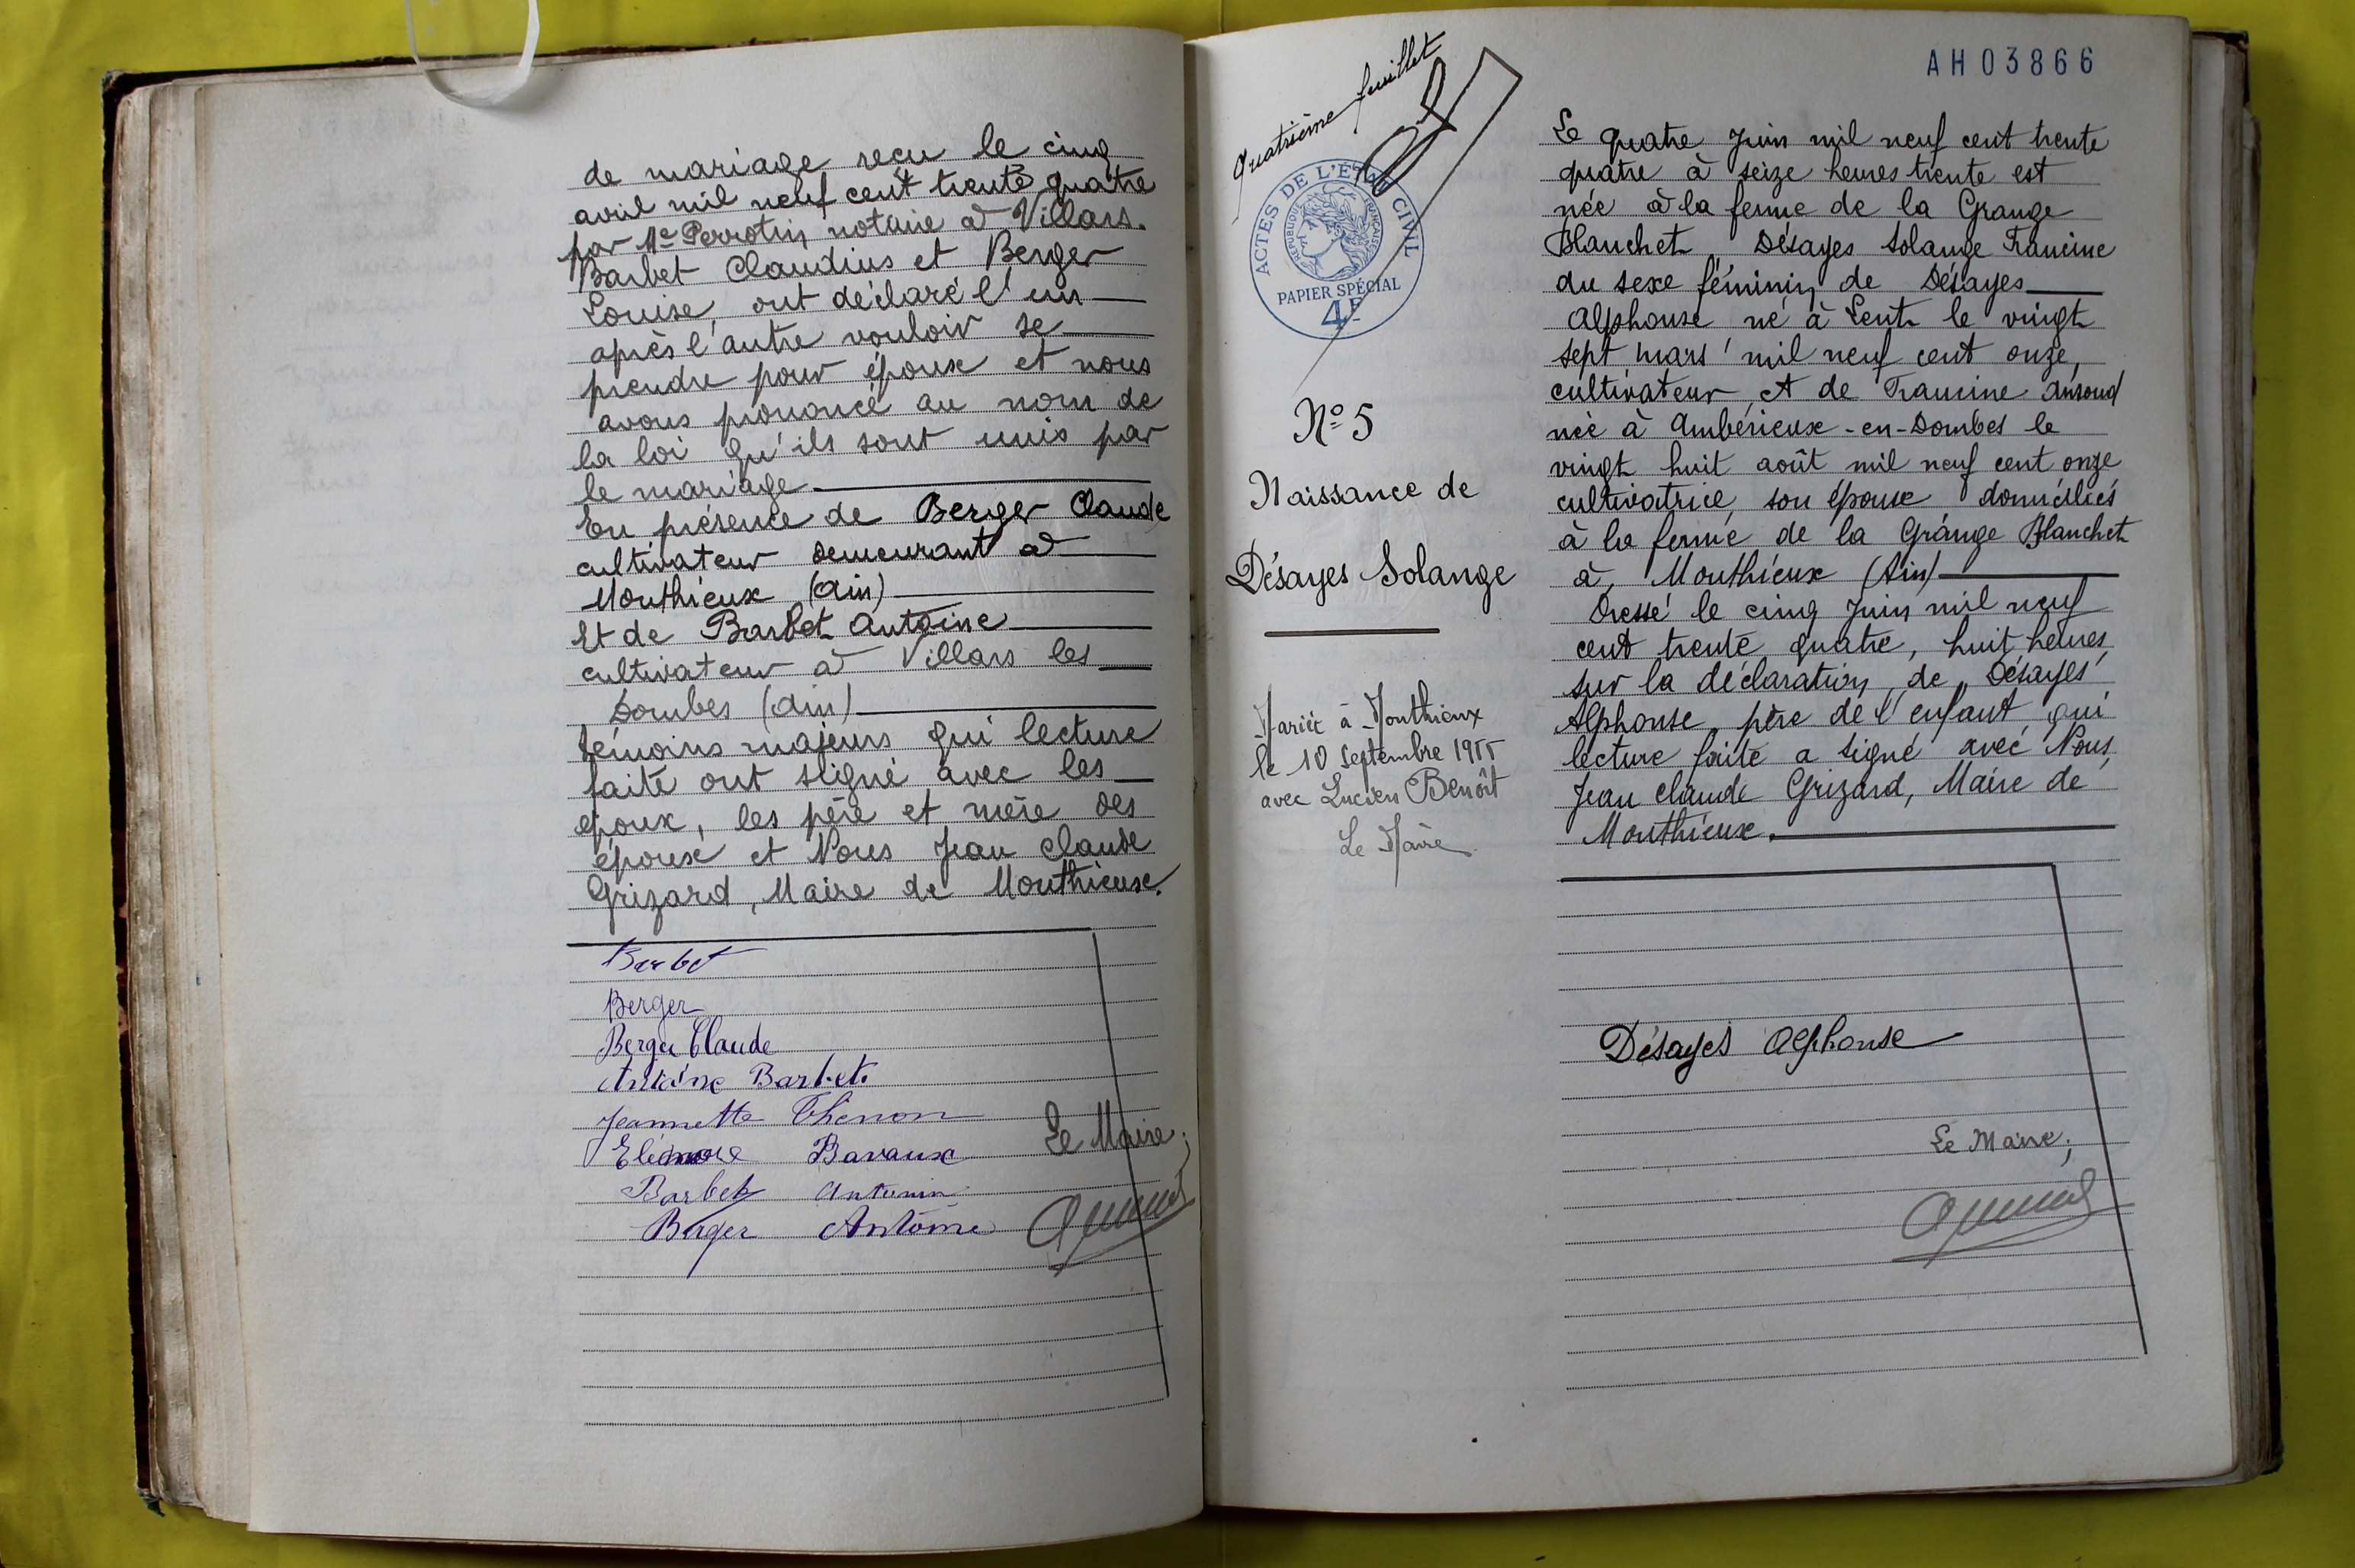 de mariage reçu le cinq
avril mil neuf cent trente quatre
par Me Perrotin notaire à Villars.
Barbet Claudius et Berger
Louise, ont déclaré l'un
après l'autre vouloir se
prendre pour époux et nous
avons prononcé au nom de
la loi qu'ils sont unis par
le mariage.
En présence de Berger Claude
cultivateur demeurant à
Monthieux (Ain)
Et de Barbet Antoine
cultivateur à Villars les
Dombes (Ain)
témoins majeurs qui lecture
faite ont signé avec les
époux, les père et mère des
époux et Nous Jean Claude
Grizard, Maire de Monthieux.
Barbet
Berger
Berger Claude
Antoine Barbet.
Jeannette Thenon
Eléonore Bavaux
Barbet Antonin
Berger Antoine
Le Maire;
Quatrième feuillet
ACTES DE L'ETAT CIVIL
REPUBLIQUE FRANÇAISE
PAPIER SPÉCIAL
4F
No 5
Naissance de
Désayes Solange
Mariée à Monthieux
le 10 Septembre 1955
avec Lucien Benoît
Le Maire
AH03866
Le quatre Juin mil neuf cent trente
quatre à seize heures trente est
née à la ferme de la Grange
Blanchet, Désayes Solange Francine
du sexe féminin de Désayes
Alphonse né à Lent le vingt
sept mars mil neuf cent onze,
cultivateur, et de Francine Ansoud
née à Ambérieux-en-Dombes le
vingt huit août mil neuf cent onze
cultivatrice, son épouse domiciliés
à la ferme de la Grange Blanchet
à Monthieux (Ain)
Dressé le cinq Juin mil neuf
cent trente quatre, huit heures,
sur la déclaration de Désayes
Alphonse, père de l'enfant, qui
lecture faite a signé avec Nous,
Jean Claude Grizard, Maire de
Monthieux.
Désayes Alphonse
Le Maire;